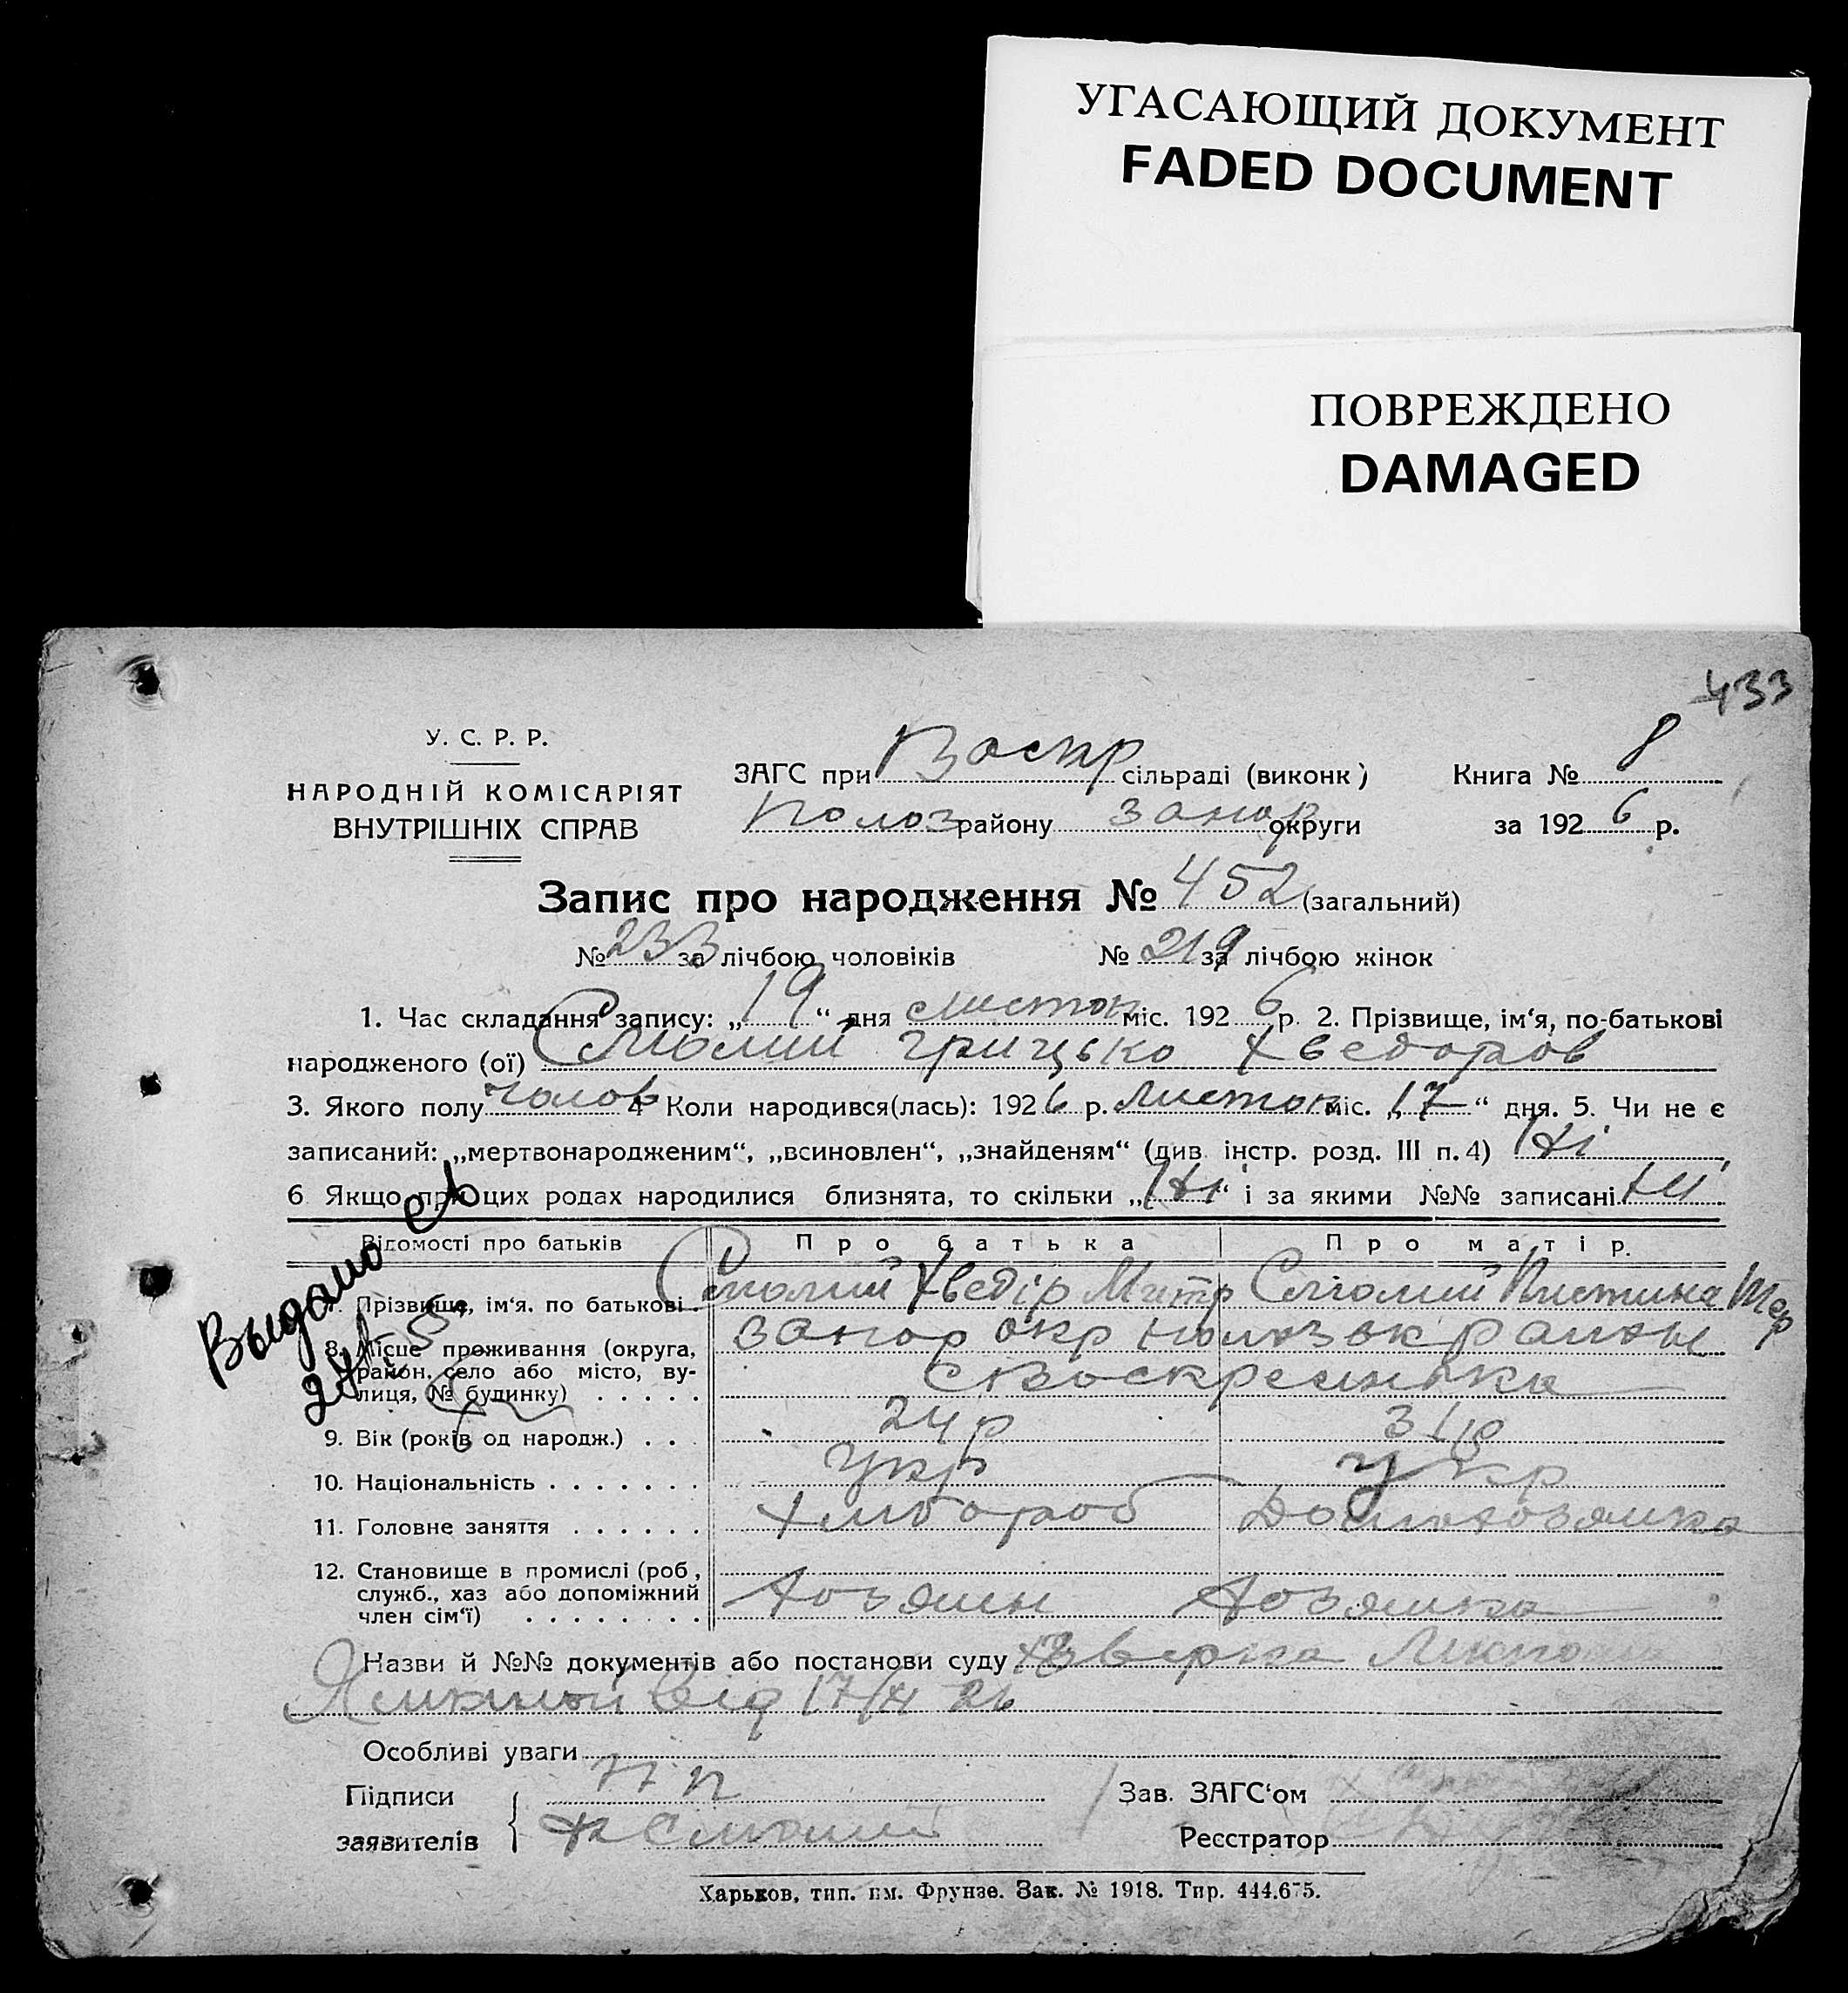 УГАСАЮЩИЙ ДОКУМЕНТ
FADED DOCUMENT
ПОВРЕЖДЕНО
DAMAGED
433
У. С. Р. Р.
НАРОДНІЙ КОМІСАРІЯТ
ВНУТРІШНІХ СПРАВ
ЗАГС при Воскр сільраді (виконк) Книга № 8
Полоз району Запор округи за 1926 р.
Запис про народження № 452 (загальний)
№ 233 за лічбою чоловіків № 219 за лічбою жінок
1. Час складання запису: „19“ дня листоп міс. 1926 р. 2. Прізвище, ім‘я, по-батькові
народженого (ої) Смолий Грицько Хведоров
3. Якого полу чолов 4 Коли народився(лась): 1926 р. листоп міс. „17“ дня. 5. Чи не є
записаний: „мертвонародженим“, „всиновлен“, „знайденям“ (див. інстр. розд. III п. 4) Ні
6 Якщо при цих родах народилися близнята, то скільки „Ні“ і за якими №№ записані Ні
Відомості про батьків Про батька Про матір.
7. Прізвище, ім‘я. по батькові. Смолий Хведір Митр Смолий Пистина
8. Місце проживання (округа, район, село або місто, вулиця, № будинку) . . . . . Запор окр район
с Воскресенька
9. Вік (років од народж.) . . . 24 р 31 р
10. Національність . . . . . . . Укр Укр
11. Головне заняття . . . . . . Хлібороб Домохозяйка
12. Становище в промислі (роб, служб., хаз або допоміжний член сім‘ї) . . . . . . . . Хозяин Хозяйка
Выдано
Назви й №№ документів або постанови суду
від 17/XI 26
Особливі уваги
Підписи заявителів НП
Х Смолий
Зав. ЗАГС‘ом
Реєстратор
Харьков, тип. им. Фрунзе. Зак. № 1918. Тир. 444.675.